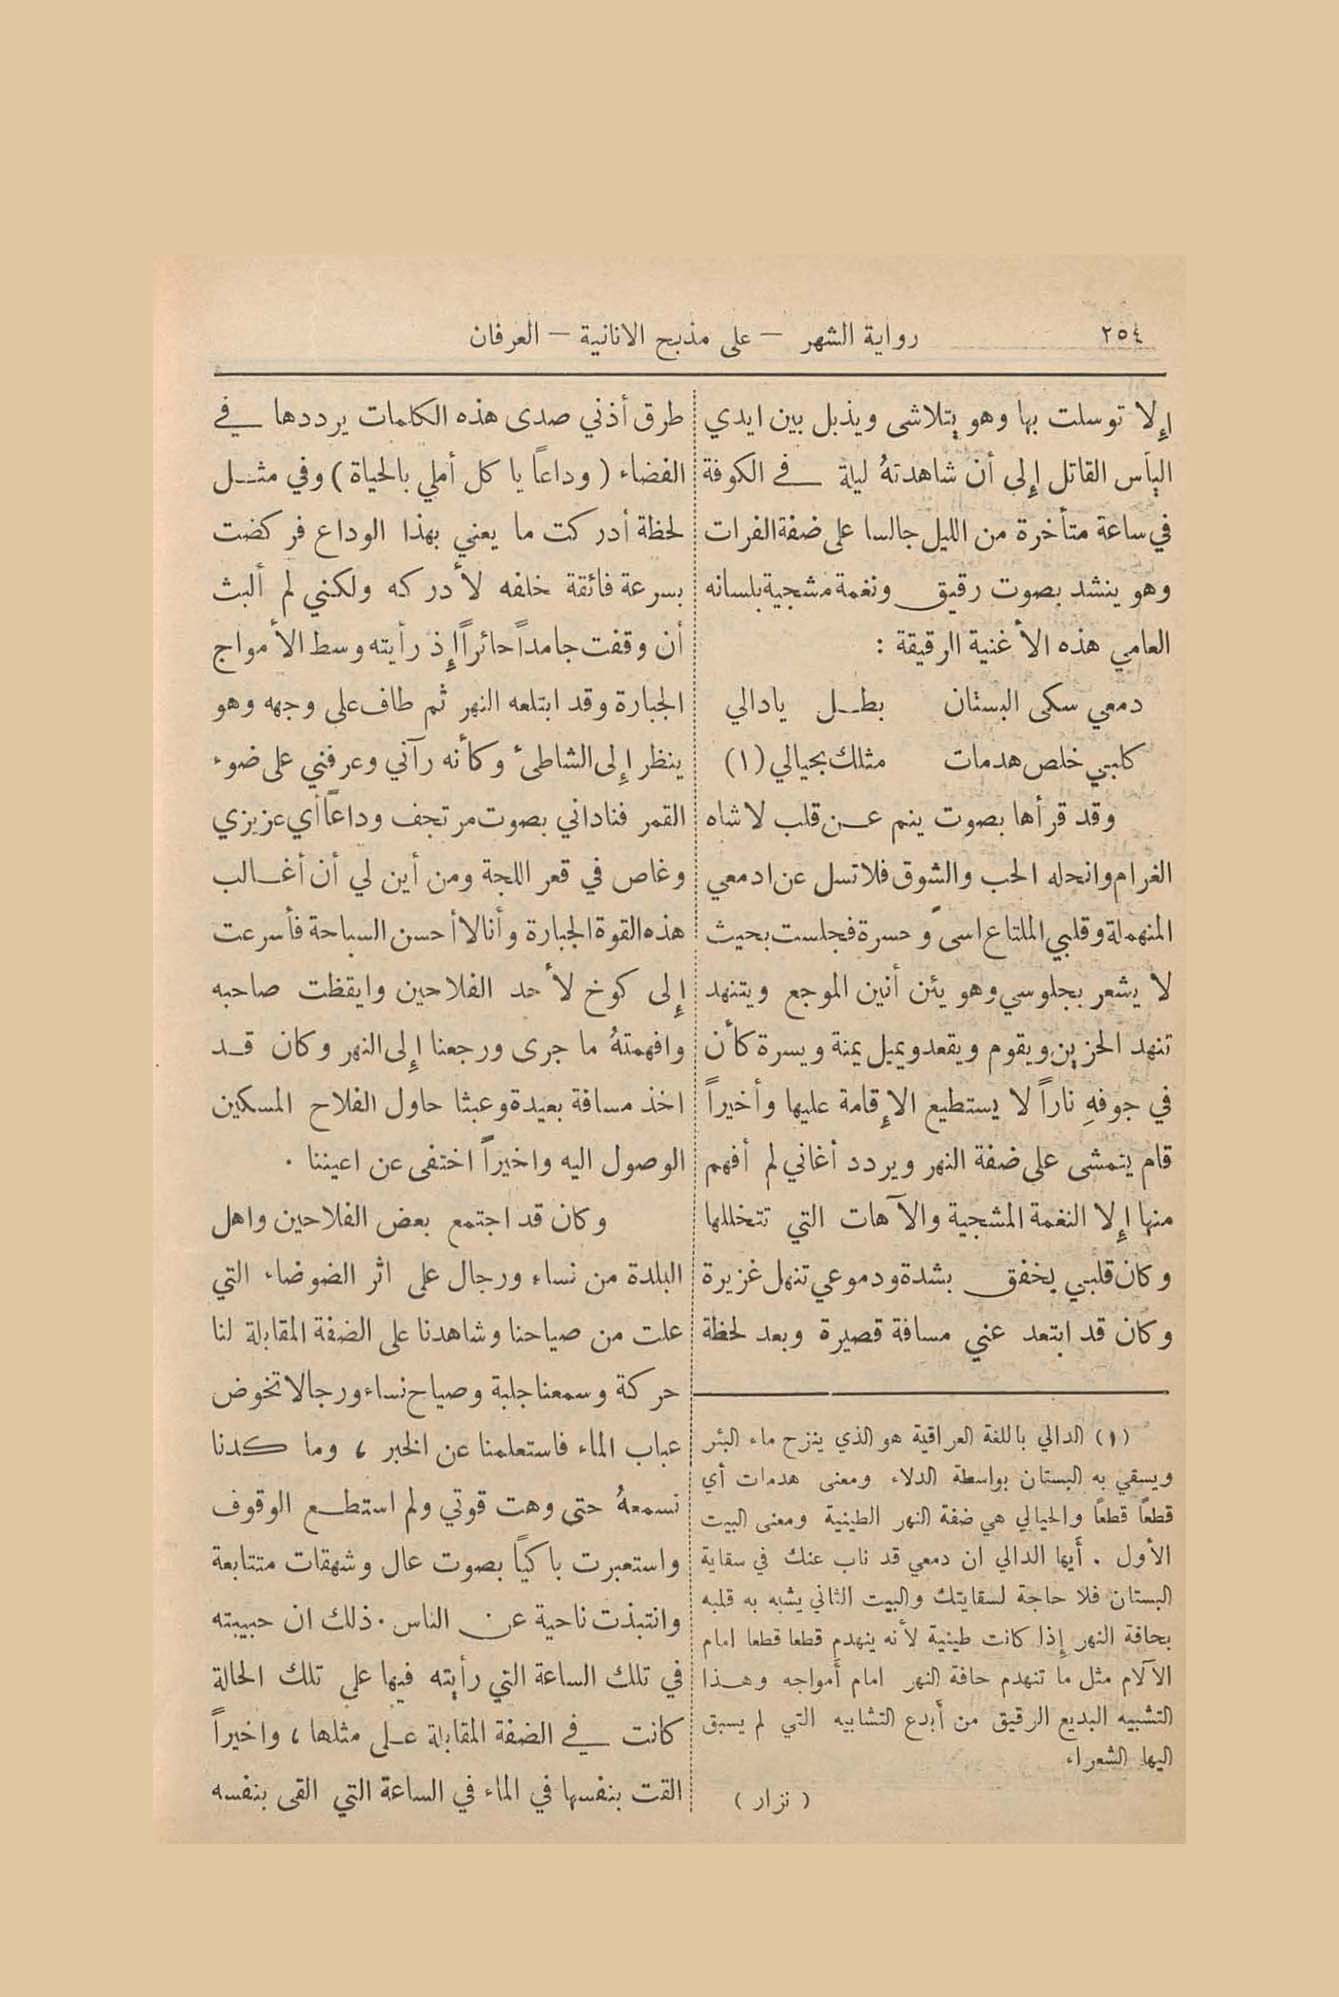 ٢٥٤
رواية الشهر — على مذبح الانانية — العرفان
إلا توسلت بها وهو يتلاشى ويذبل بين ايدي
اليأس القاتل إلى أن شاهدتهُ ليلة في الكوفة
في ساعة متأخرة من الليل جالسا على ضفة الفرات
وهو ينشد بصوت رقيق ونغمة مشجية بلسانه
العامي هذه الأغنية الرقيقة :
دمعي سكى البستان بطل يادالي
كلبي خلص هدمات مثلك بحيالي (١)
وقد قرأها بصوت ينم عن قلب لاشاه
الغرام وانحله الحب والشوق فلا تسل عن ادمعي
المنهملة وقلبي الملتاع اسىً وحسرة فجلست بحيث
لا يشعر بجلوسي وهو يئن أنين الموجع ويتنهد
تنهد الحزين ويقوم ويقعد ويميل يمنة ويسرة كأن
في جوفهِ ناراً لا يستطيع الإقامة عليها وأخيراً
قام يتمشى على ضفة النهر ويردد أغاني لم أفهم
منها إلا النغمة المشجية والآهات التي تتخللها
وكان قلبي يخفق بشدة ودموعي تنهل غزيرة
وكان قد ابتعد عني مسافة قصيرة وبعد لحظة
(١) الدالي باللغة العراقية هو الذي ينزح ماء البئر
ويسقي به البستان بواسطة الدلاء ومعنى هدمات أي
قطعاً قطعاً والحيالي هي ضفة النهر الطينية ومعنى البيت
الأول . أيها الدالي ان دمعي قد ناب عنك في سقاية
البستان فلا حاجة لسقايتك والبيت الثاني يشبه به قلبه
بحافة النهر إذا كانت طينية لأنه ينهدم قطعا قطعا امام
الآلام مثل ما تنهدم حافة النهر امام أمواجه وهذا
التشبيه البديع الرقيق من أبدع التشابيه التي لم يسبق
اليها الشعراء
( نزار )
طرق أذني صدى هذه الكلمات يرددها في
الفضاء ( وداعاً يا كل أملي بالحياة ) وفي مثل
لحظة أدركت ما يعني بهذا الوداع فركضت
بسرعة فائقة خلفه لأدركه ولكني لم ألبث
أن وقفت جامداً حائراً إذ رأيته وسط الأمواج
الجبارة وقد ابتلعه النهر ثم طاف على وجهه وهو
ينظر إلى الشاطئ وكأنه رآني وعرفني على ضوء
القمر فناداني بصوت مرتجف وداعاً أي عزيزي
وغاص في قعر اللجة ومن أين لي أن أغالب
هذه القوة الجبارة وأنا لا أحسن السباحة فأسرعت
إلى كوخ لأحد الفلاحين وايقظت صاحبه
وافهمتهُ ما جرى ورجعنا إلى النهر وكان قد
اخذ مسافة بعيدة وعبثا حاول الفلاح المسكين
الوصول اليه واخيراً اختفى عن اعيننا .
وكان قد اجتمع بعض الفلاحين واهل
البلدة من نساء ورجال على اثر الضوضاء التي
علت من صياحنا وشاهدنا على الضفة المقابلة لنا
حركة وسمعنا جلبة وصياح نساء ورجالا تخوض
عباب الماء فاستعلمنا عن الخبر ، وما كدنا
نسمعهُ حتى وهت قوتي ولم استطع الوقوف
واستعبرت باكياً بصوت عال وشهقات متتابعة
وانتبذت ناحية عن الناس . ذلك ان حبيبته
في تلك الساعة التي رأيته فيها على تلك الحالة
كانت في الضفة المقابلة على مثلها ، واخيراً
القت بنفسها في الماء في الساعة التي القى بنفسه